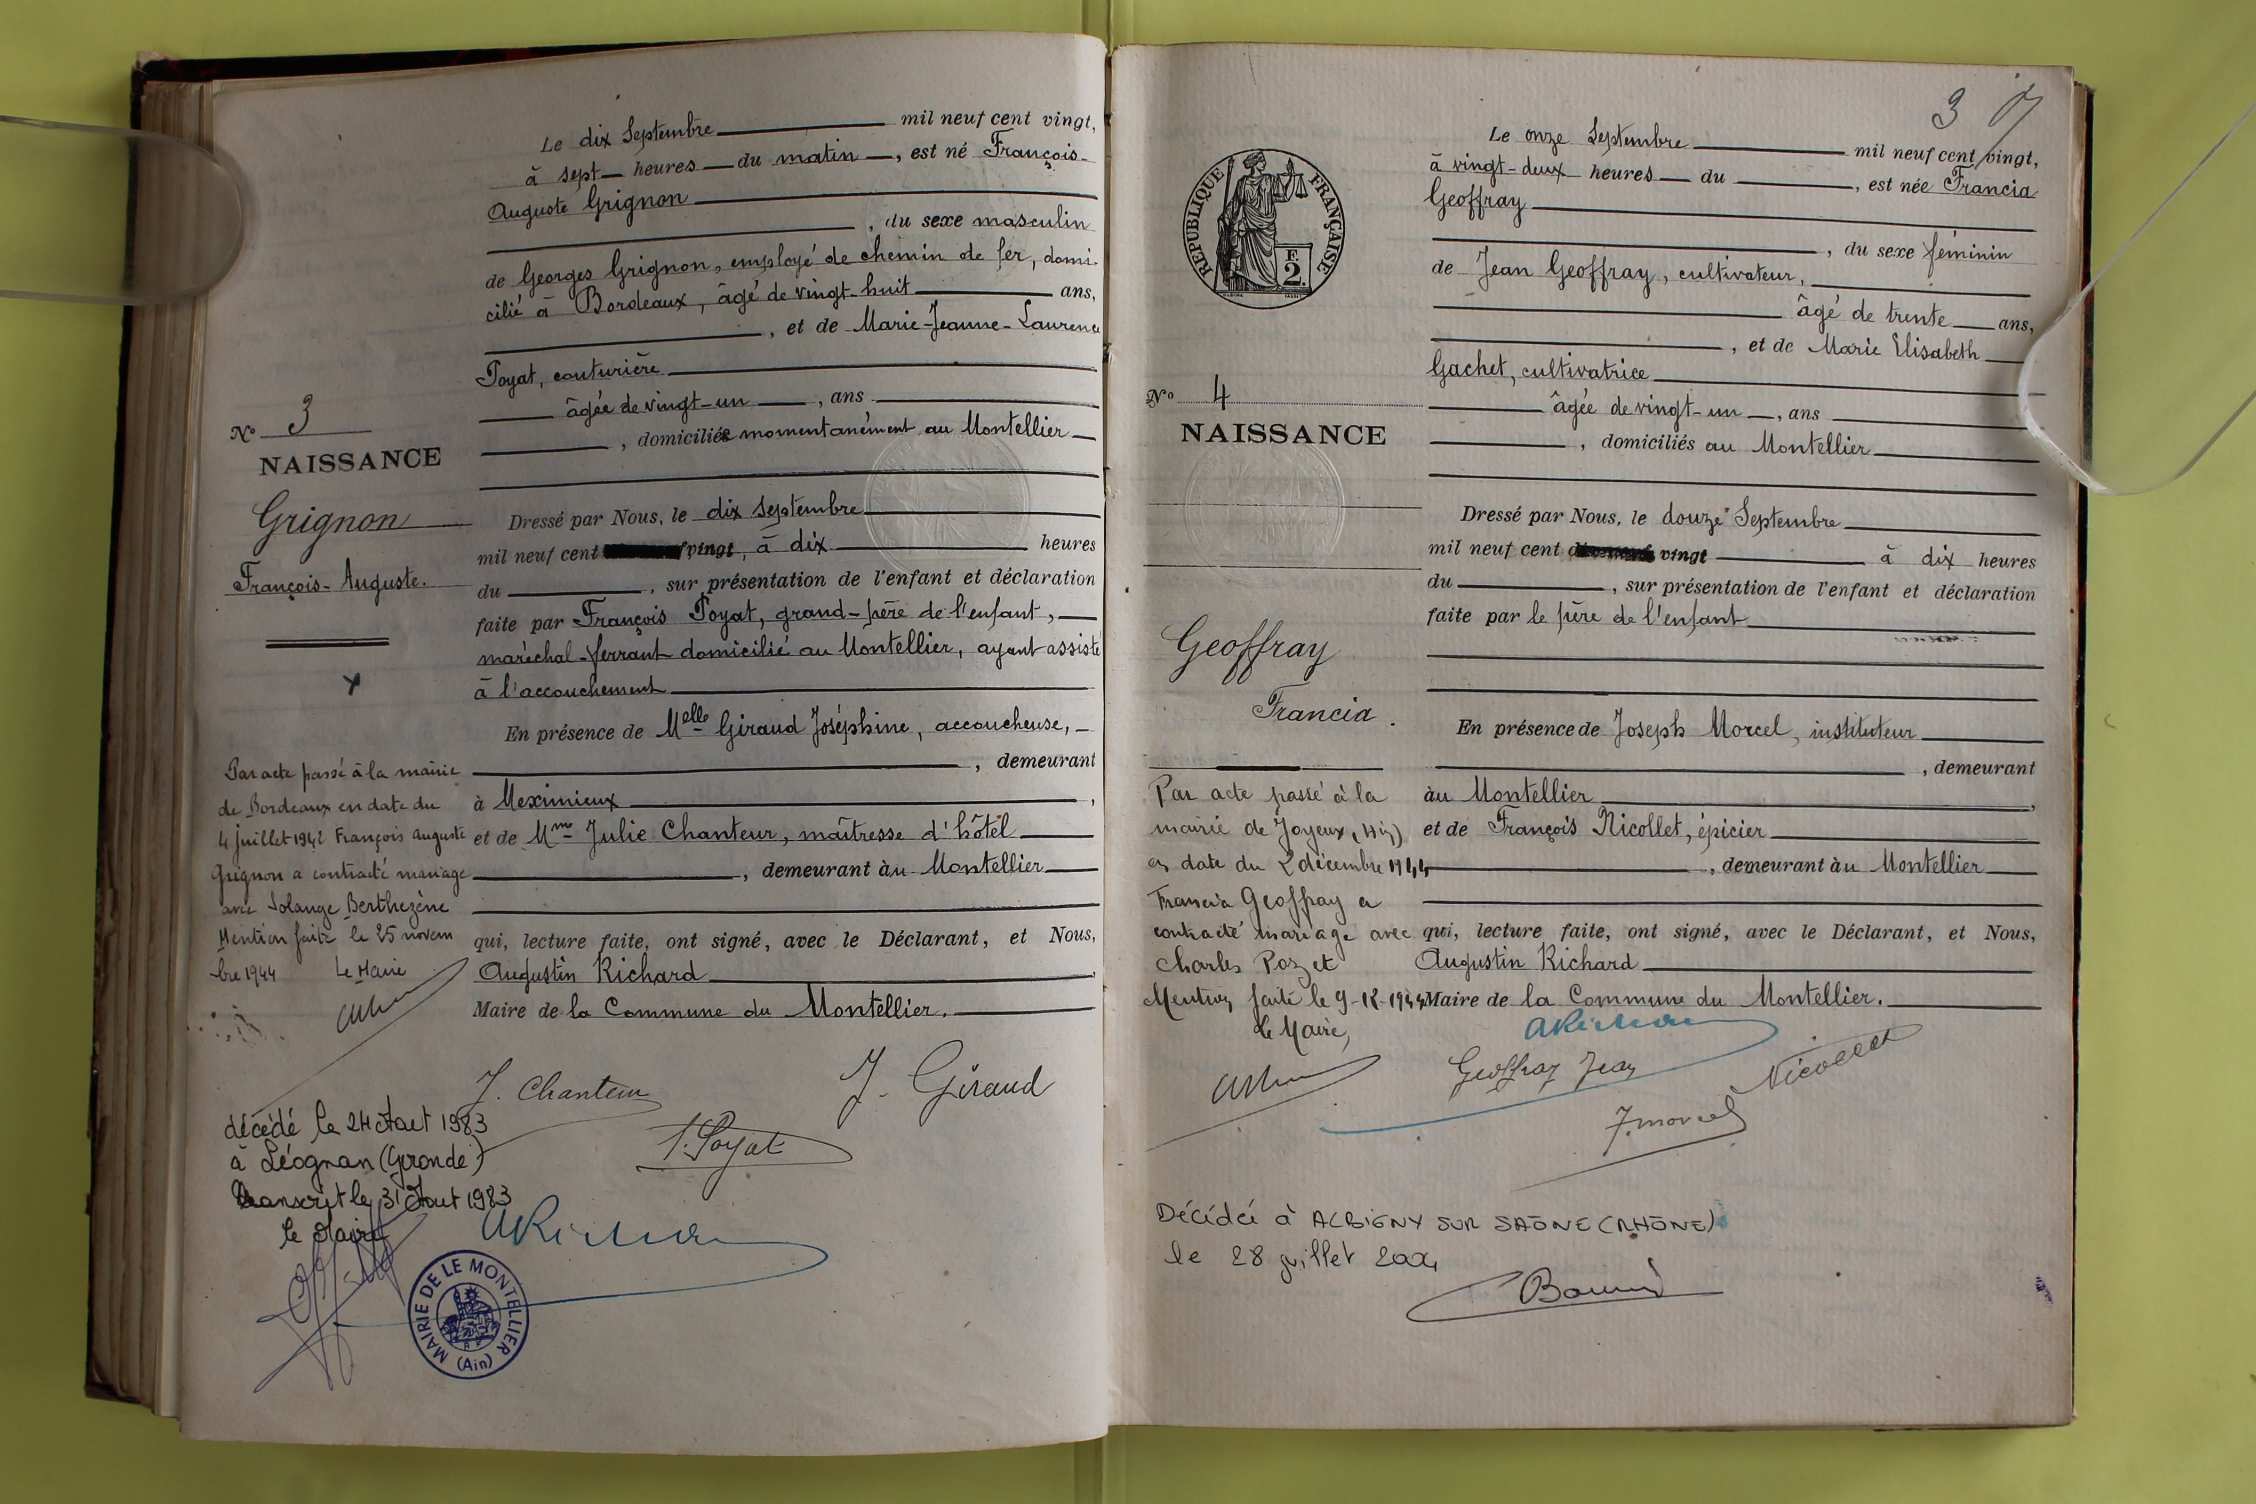 Le dix Septembre mil neuf cent vingt,
à sept heures du matin, est né François-
Auguste Grignon
, du sexe masculin
de Georges Grignon, employé de chemin de fer, domi-
cilié à Bordeaux, âgé de vingt-huit ans,
, et de Marie-Jeanne-Laurence
Poyat, couturière
âgée de vingt-un, ans
, domiciliée momentanément au Montellier
Nº 3
NAISSANCE
Grignon
François-Auguste.
Dressé par Nous, le dix Septembre
mil neuf cent vingt, à dix heures
du, sur présentation de l'enfant et déclaration
faite par François Poyat, grand-père de l'enfant,
maréchal-ferrant domicilié au Montellier, ayant assisté
à l'accouchement
En présence de Melle Giraud Joséphine, accoucheuse,
, demeurant
à Meximieux,
et de Mme Julie Chanteur, maîtresse d'hôtel
, demeurant àu Montellier
qui, lecture faite, ont signé, avec le Déclarant, et Nous,
Augustin Richard,
Maire de la Commune du Montellier.
Par acte passé à la mairie
de Bordeaux en date du
4 juillet 1942 François Auguste
Grignon a contracté mariage
avec Solange Berthezène
Mention faite le 25 novem
bre 1944 Le Maire
J. Chanteur
J. Giraud
F. Poyat
ARichard
décédé le 24 Aout 1983
à Léognan (Gironde)
transcrit le 31 Aout 1983
le Maire
MAIRIE DE LE MONTELLIER
(Ain)
3
RÉPUBLIQUE FRANÇAISE
F.
2.
Le onze Septembre mil neuf cent vingt,
à vingt-deux heures du, est née Francia
Geoffray
, du sexe féminin
de Jean Geoffray, cultivateur,
âgé de trente ans,
, et de Marie Elisabeth
Gachet, cultivatrice
âgée de vingt-un, ans
, domiciliés au Montellier
Nº 4
NAISSANCE
Geoffray
Francia.
Dressé par Nous, le douze Septembre
mil neuf cent vingt à dix heures
du, sur présentation de l'enfant et déclaration
faite par le père de l'enfant
En présence de Joseph Morcel, instituteur
, demeurant
àu Montellier,
et de François Nicollet, épicier
, demeurant àu Montellier
qui, lecture faite, ont signé, avec le Déclarant, et Nous,
Augustin Richard
Maire de la Commune du Montellier.
Par acte passé à la
mairie de Joyeux, (Ain)
en date du 2 décembre 1944
Francia Geoffray a
contracté mariage avec
Charles Pozzet
Mention faite le 9-12-1944
Le Maire,
ARichard
Geoffray Jean
Nicollet
J. Morcel
Décédée à ALBIGNY SUR SAÔNE (RHÔNE)
le 28 juillet 2004